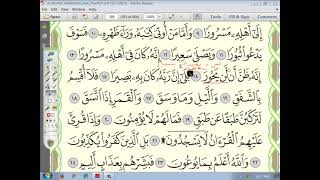 Adobe Reader
Tools Fill & Sign Comment
إِلَىٰٓ أَهْلِهِۦ مَسْرُورًا ٩ وَأَمَّا مَنْ أُوتِيَ كِتَٰبَهُۥ وَرَآءَ ظَهْرِهِۦ ١٠ فَسَوْفَ
يَدْعُوا۟ ثُبُورًا ١١ وَيَصْلَىٰ سَعِيرًا ١٢ إِنَّهُۥ كَانَ فِىٓ أَهْلِهِۦ مَسْرُورًا ١٣
إِنَّهُۥ ظَنَّ أَن لَّن يَحُورَ ١٤ بَلَىٰٓ إِنَّ رَبَّهُۥ كَانَ بِهِۦ بَصِيرًا ١٥ فَلَآ أُقْسِمُ
بِٱلشَّفَقِ ١٦ وَٱلَّيْلِ وَمَا وَسَقَ ١٧ وَٱلْقَمَرِ إِذَا ٱتَّسَقَ ١٨
لَتَرْكَبُنَّ طَبَقًا عَن طَبَقٍ ١٩ فَمَا لَهُمْ لَا يُؤْمِنُونَ ٢٠ وَإِذَا قُرِئَ
عَلَيْهِمُ ٱلْقُرْءَانُ لَا يَسْجُدُونَ ٢١ بَلِ ٱلَّذِينَ كَفَرُوا۟ يُكَذِّبُونَ
٢٢ وَٱللَّهُ أَعْلَمُ بِمَا يُوعُونَ ٢٣ فَبَشِّرْهُم بِعَذَابٍ أَلِيمٍ ٢٤